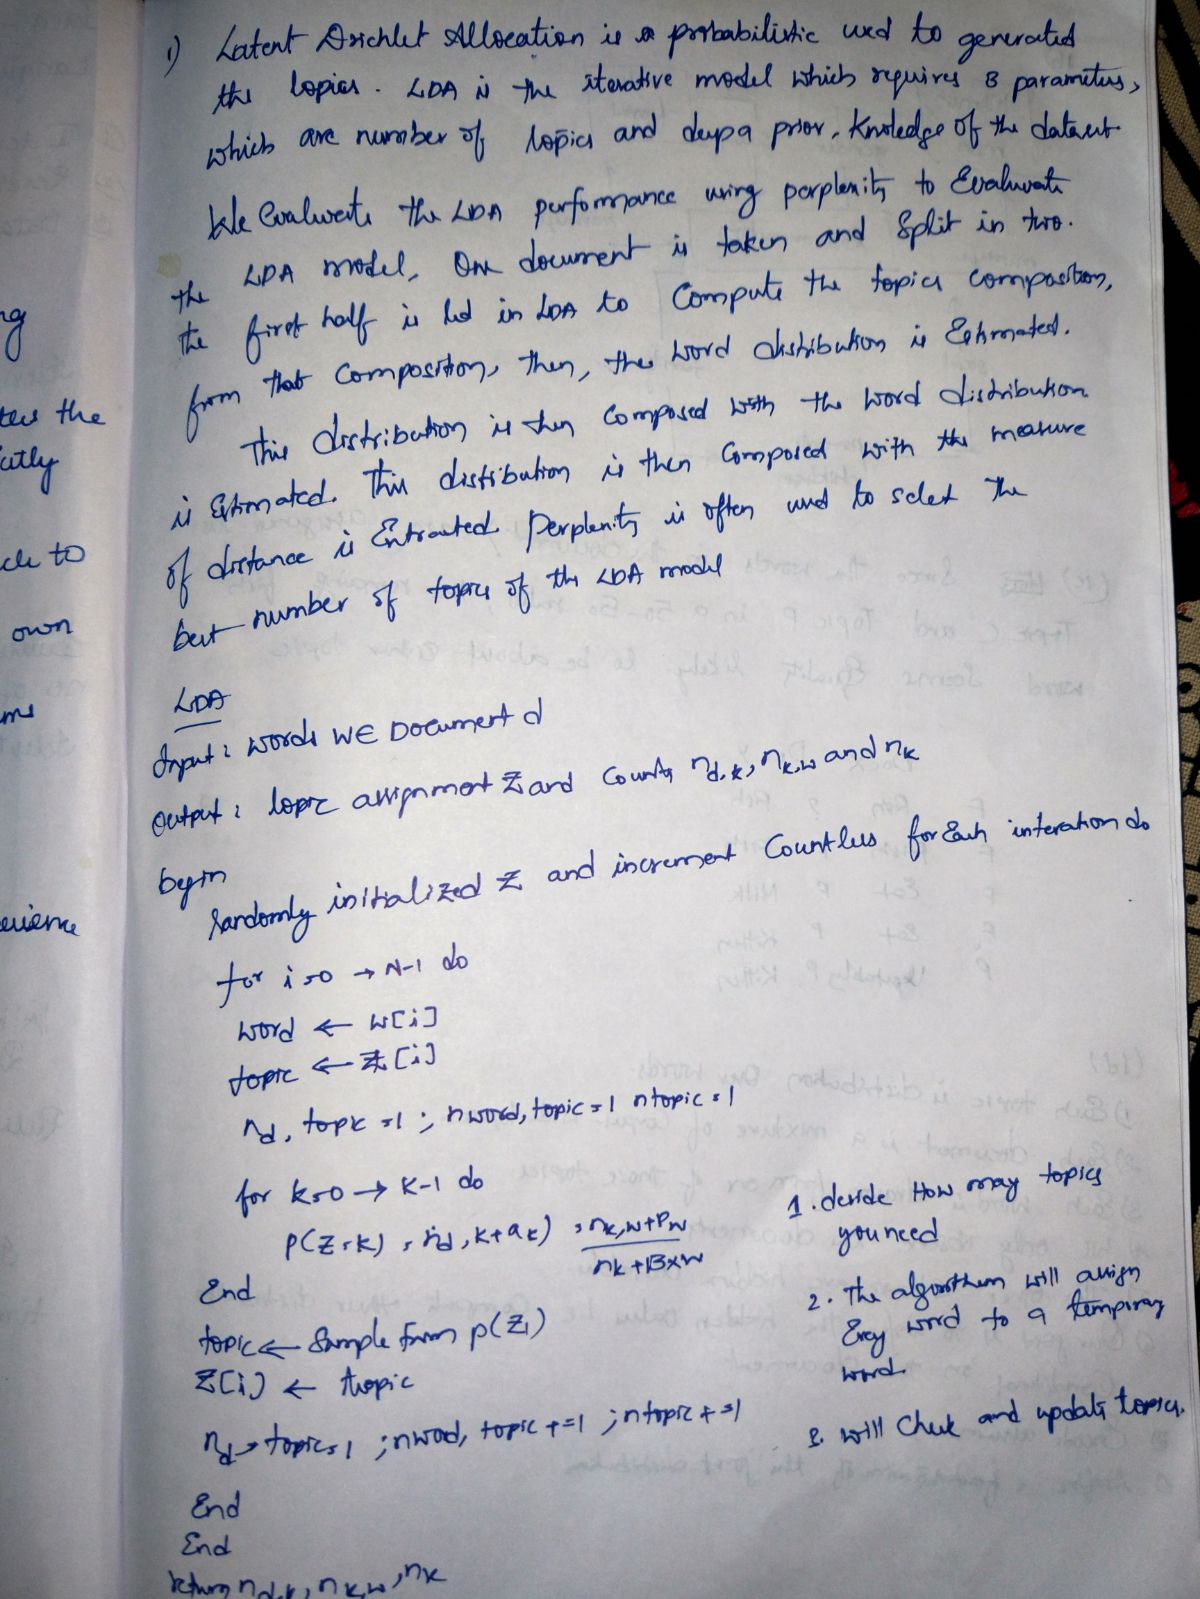 1) Latent Drichlet Allocation is a probabilistic used to generated
the topics. LDA is the iterative model which requires 3 parameters,
which are number of topics and prior, Knoledge of the dataset
We Evaluvate the LDA performance using perplexity to Evaluvate
the LDA model, One document is taken and Split in two.
The first half is fed in LDA to Compute the topics composition,
from that Composition, then, the word distribution is Estimated.
This distribution is then Composed with the word distribution
is Estimated. This distribution is then Composed with the measure
of distance is Extracted. Perplexity is often used to select the
best number of topics of the LDA model
LDA
Input : words WE Document d
Output : topic assignment Z and Counts nd,k, nk,w and nk
begin
randomly initialized Z and increment Counters for Each interation do
for i=0 → N-1 do
word ← w[i]
topic ← Z[i]
nd, topic =1 ; nword, topic =1 ntopic =1
for k=0 → K-1 do
P(Z=k) = nd,k+ak) nk,w+Pw
nk+Bxw
End
topic ← Sample from p(Z1)
Z[i] ← topic
nd → topic=1 ; nwod, topic +=1 ; ntopic +=1
End
End
return nd,k, nk,w, nk
1. decide How may topics
you need
2. The algorithem will assign
Evey word to a temporary
word.
3. will Check and update topics.
ng
ters the
ctly
cle to
own
ms